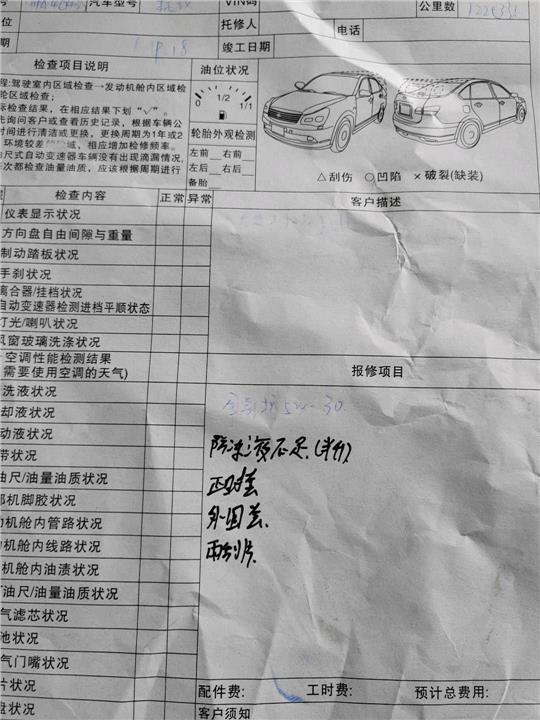 号 汽车型号 VIN码 公里数
位 托修人 电话
期 竣工日期
检查项目说明 油位状况
程:驾驶室内区域检查→发动机舱内区域检
轮区域检查;
际检查结果,在相应结果下划“√”。
先询问客户或查看历史记录,根据车辆公
时间进行清洁或更换,更换周期为1年或2
环境较差 域,相应增加检修频率。
油尺式自动变速器车辆没有出现滴漏情况,
次都检查油量油质,应该根据周期进行
0 1/2 1/1
轮胎外观检测
左前 右前
左后 右后
备胎
△刮伤 ○凹陷 ×破裂(缺装)
检查内容 正常 异常 客户描述
仪表显示状况
方向盘自由间隙与重量
制动踏板状况
手刹状况
离合器/挂档状况
自动变速器检测进档平顺状态
灯光/喇叭状况
风窗玻璃洗涤状况
空调性能检测结果
需要使用空调的天气)
报修项目
洗液状况
5w-30
却液状况
动液状况
防冻液不足.(半升).
带状况
油尺/油量油质状况
正时盖
部机脚胶状况
动机舱内管路状况
外围盖.
动机舱内线路状况
雨刮片.
机舱内油渍状况
油尺/油量油质状况
气滤芯状况
池状况
气门嘴状况
片状况
配件费: 工时费: 预计总费用:
盘状况
客户须知